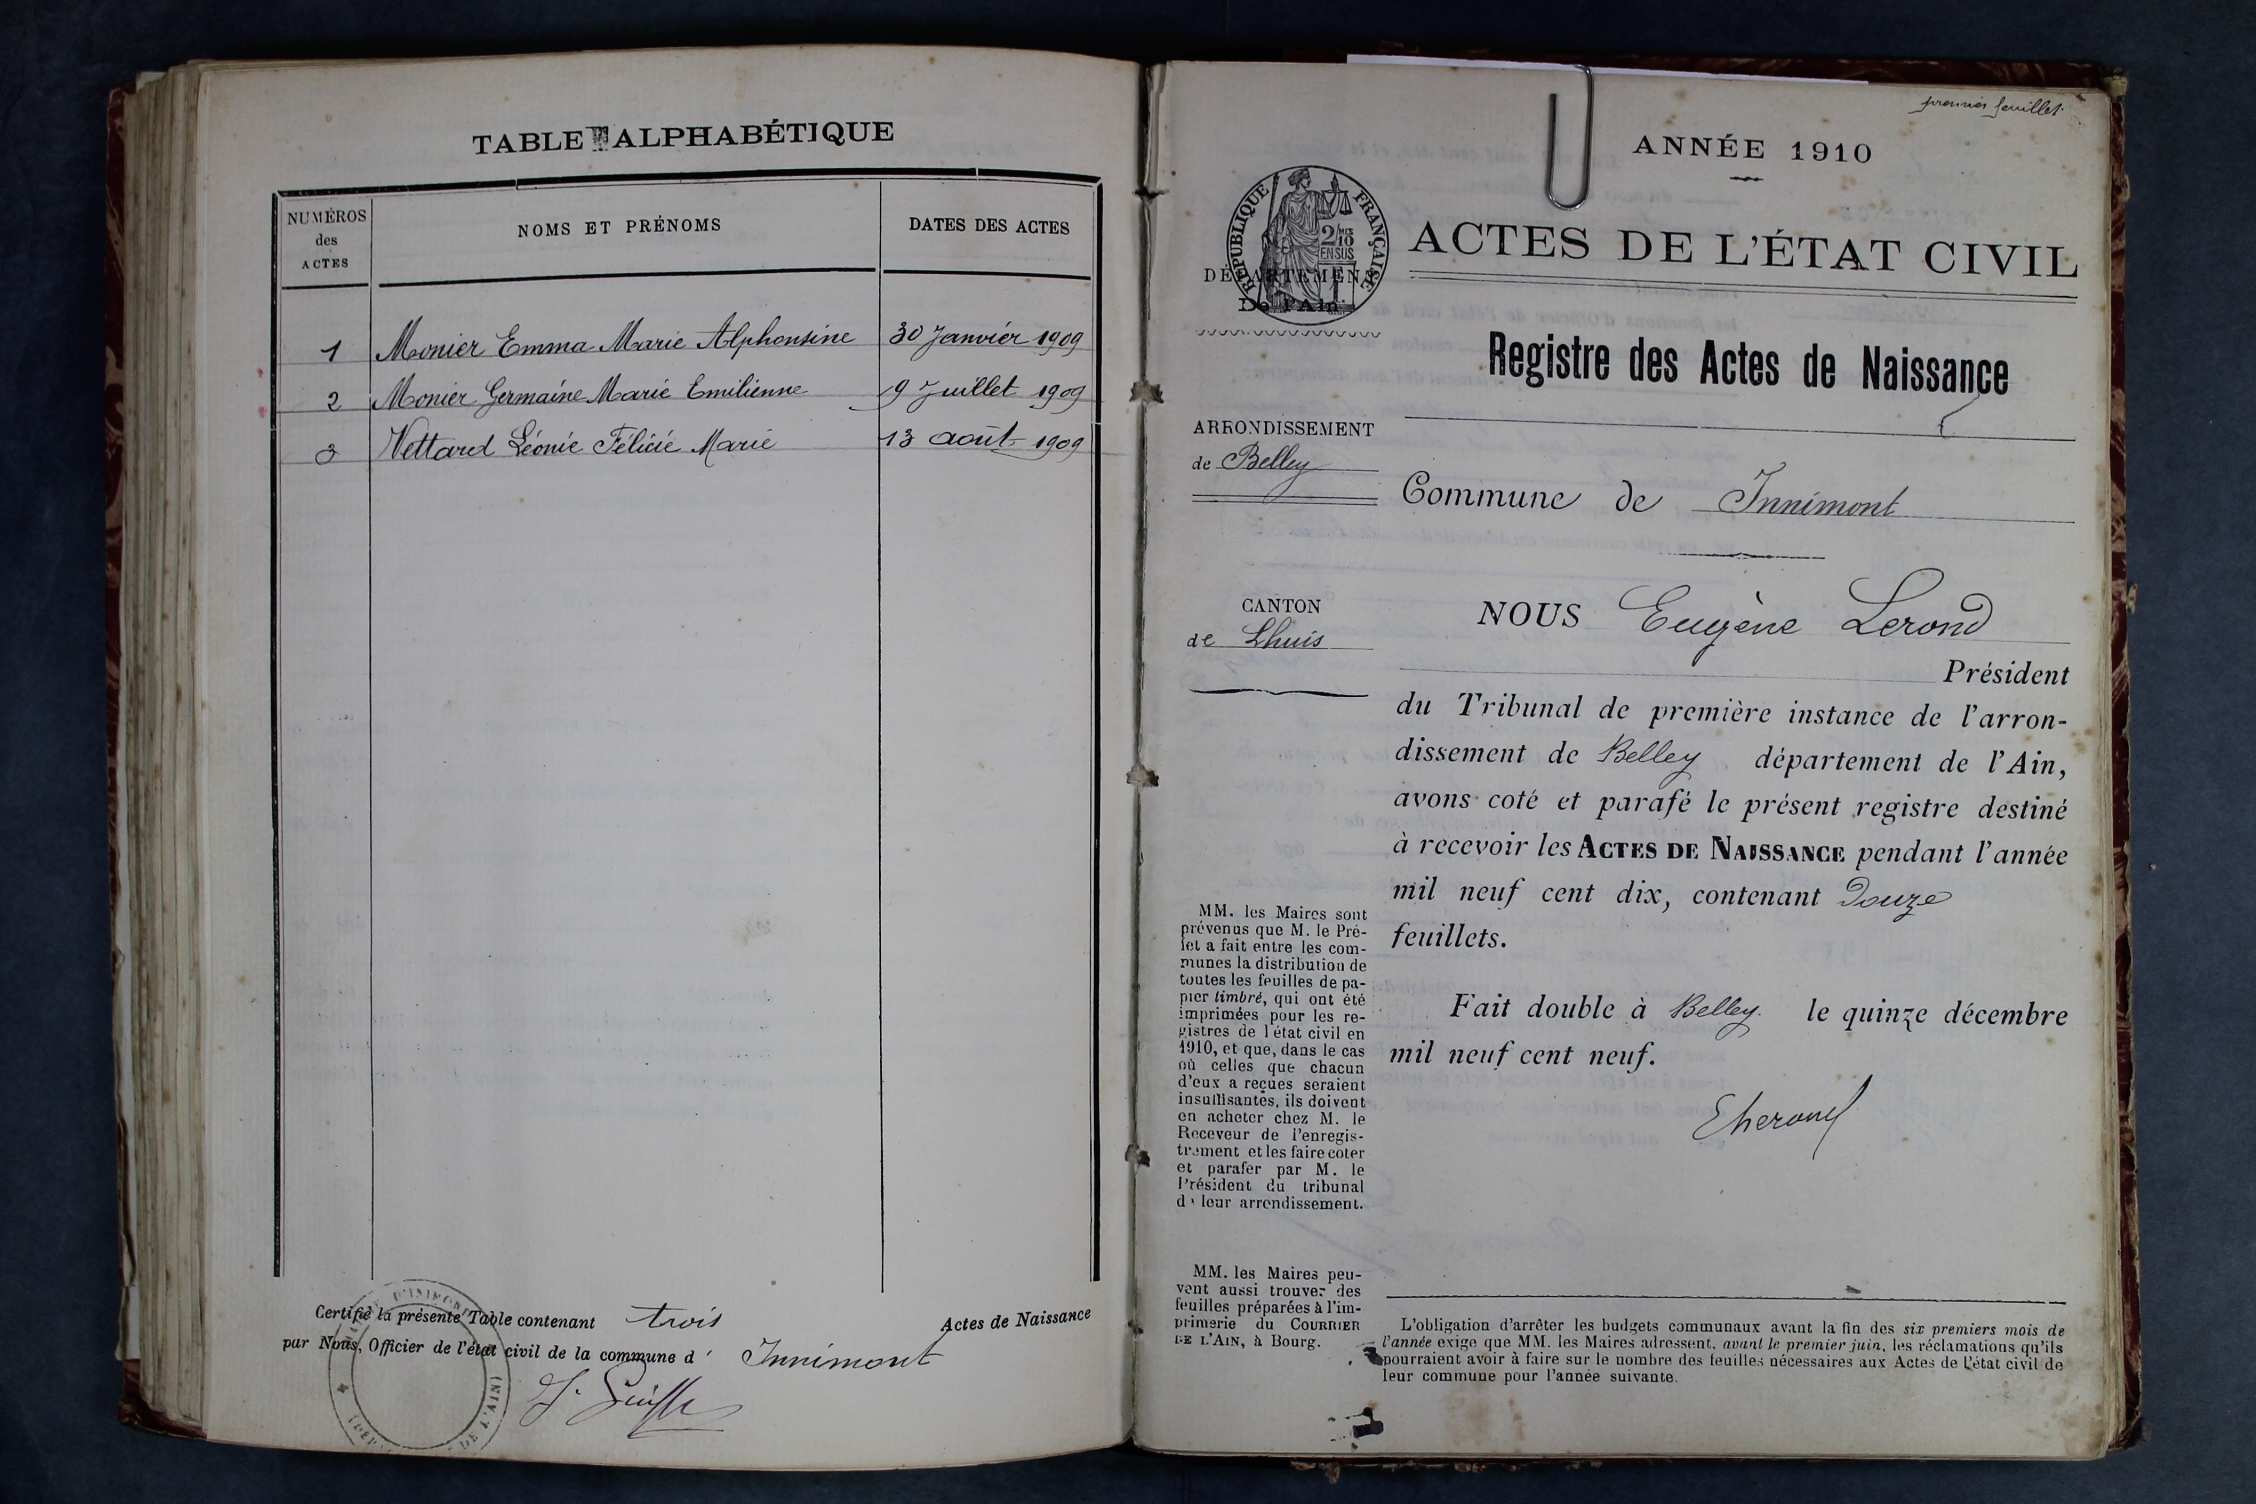 TABLE ALPHABÉTIQUE
NUMÉROS
des
ACTES
NOMS ET PRÉNOMS
DATES DES ACTES
1 Monier Emma Marie Alphonsine 30 Janvier 1909
2 Monier Germaine Marie Emilienne 9 Juillet 1909
3 Vettard Léonie Félicie Marie 13 août 1909
Certifié la présente Table contenant trois Actes de Naissance
par Nous, Officier de l'état civil de la commune d' Innimont
premier feuillet
ANNÉE 1910
RÉPUBLIQUE FRANÇAISE
2/10
EN SUS
DÉPARTEMENT
De l'Ain
ACTES DE L'ÉTAT CIVIL
Registre des Actes de Naissance
ARRONDISSEMENT
de Belley
Commune de Innimont
CANTON
de Lhuis
NOUS Eugène Lerond
Président
du Tribunal de première instance de l'arron-
dissement de Belley département de l'Ain,
avons coté et parafé le présent registre destiné
à recevoir les ACTES DE NAISSANCE pendant l'année
mil neuf cent dix, contenant Douze
feuillets.
Fait double à Belley le quinze décembre
mil neuf cent neuf.
ELerond
MM. les Maires sont
prévenus que M. le Pré-
fet a fait entre les com-
munes la distribution de
toutes les feuilles de pa-
pier timbré, qui ont été
imprimées pour les re-
gistres de l'état civil en
1910, et que, dans le cas
où celles que chacun
d'eux a reçues seraient
insuffisantes, ils doivent
en acheter chez M. le
Receveur de l'enregis-
trement et les faire coter
et parafer par M. le
Président du tribunal
de leur arrondissement.
MM. les Maires peu-
vent aussi trouver des
feuilles préparées à l'im-
primerie du COURRIER
DE L'AIN, à Bourg.
L'obligation d'arrêter les budgets communaux avant la fin des six premiers mois de
l'année exige que MM. les Maires adressent, avant le premier juin, les réclamations qu'ils
pourraient avoir à faire sur le nombre des feuilles nécessaires aux Actes de l'état civil de
leur commune pour l'année suivante.